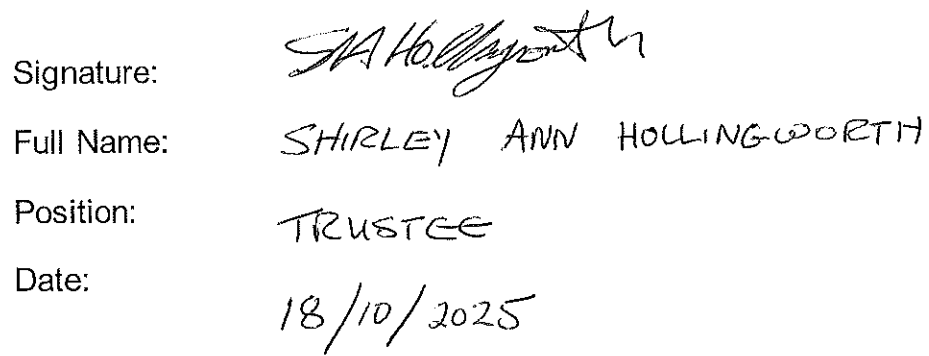 Signature: SAHollingworth
Full Name: SHIRLEY ANN HOLLINGWORTH
Position: TRUSTEE
Date: 18/10/2025